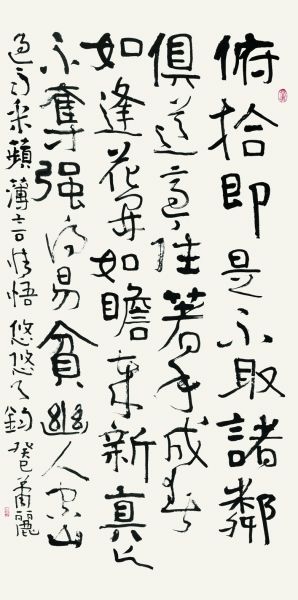 俯拾即是不取諸鄰
俱道適往著手成春
如逢花開如瞻歲新真与
不奪强得易貧幽人空山
過雨采蘋薄言情悟悠悠天鈞癸巳蕭麗